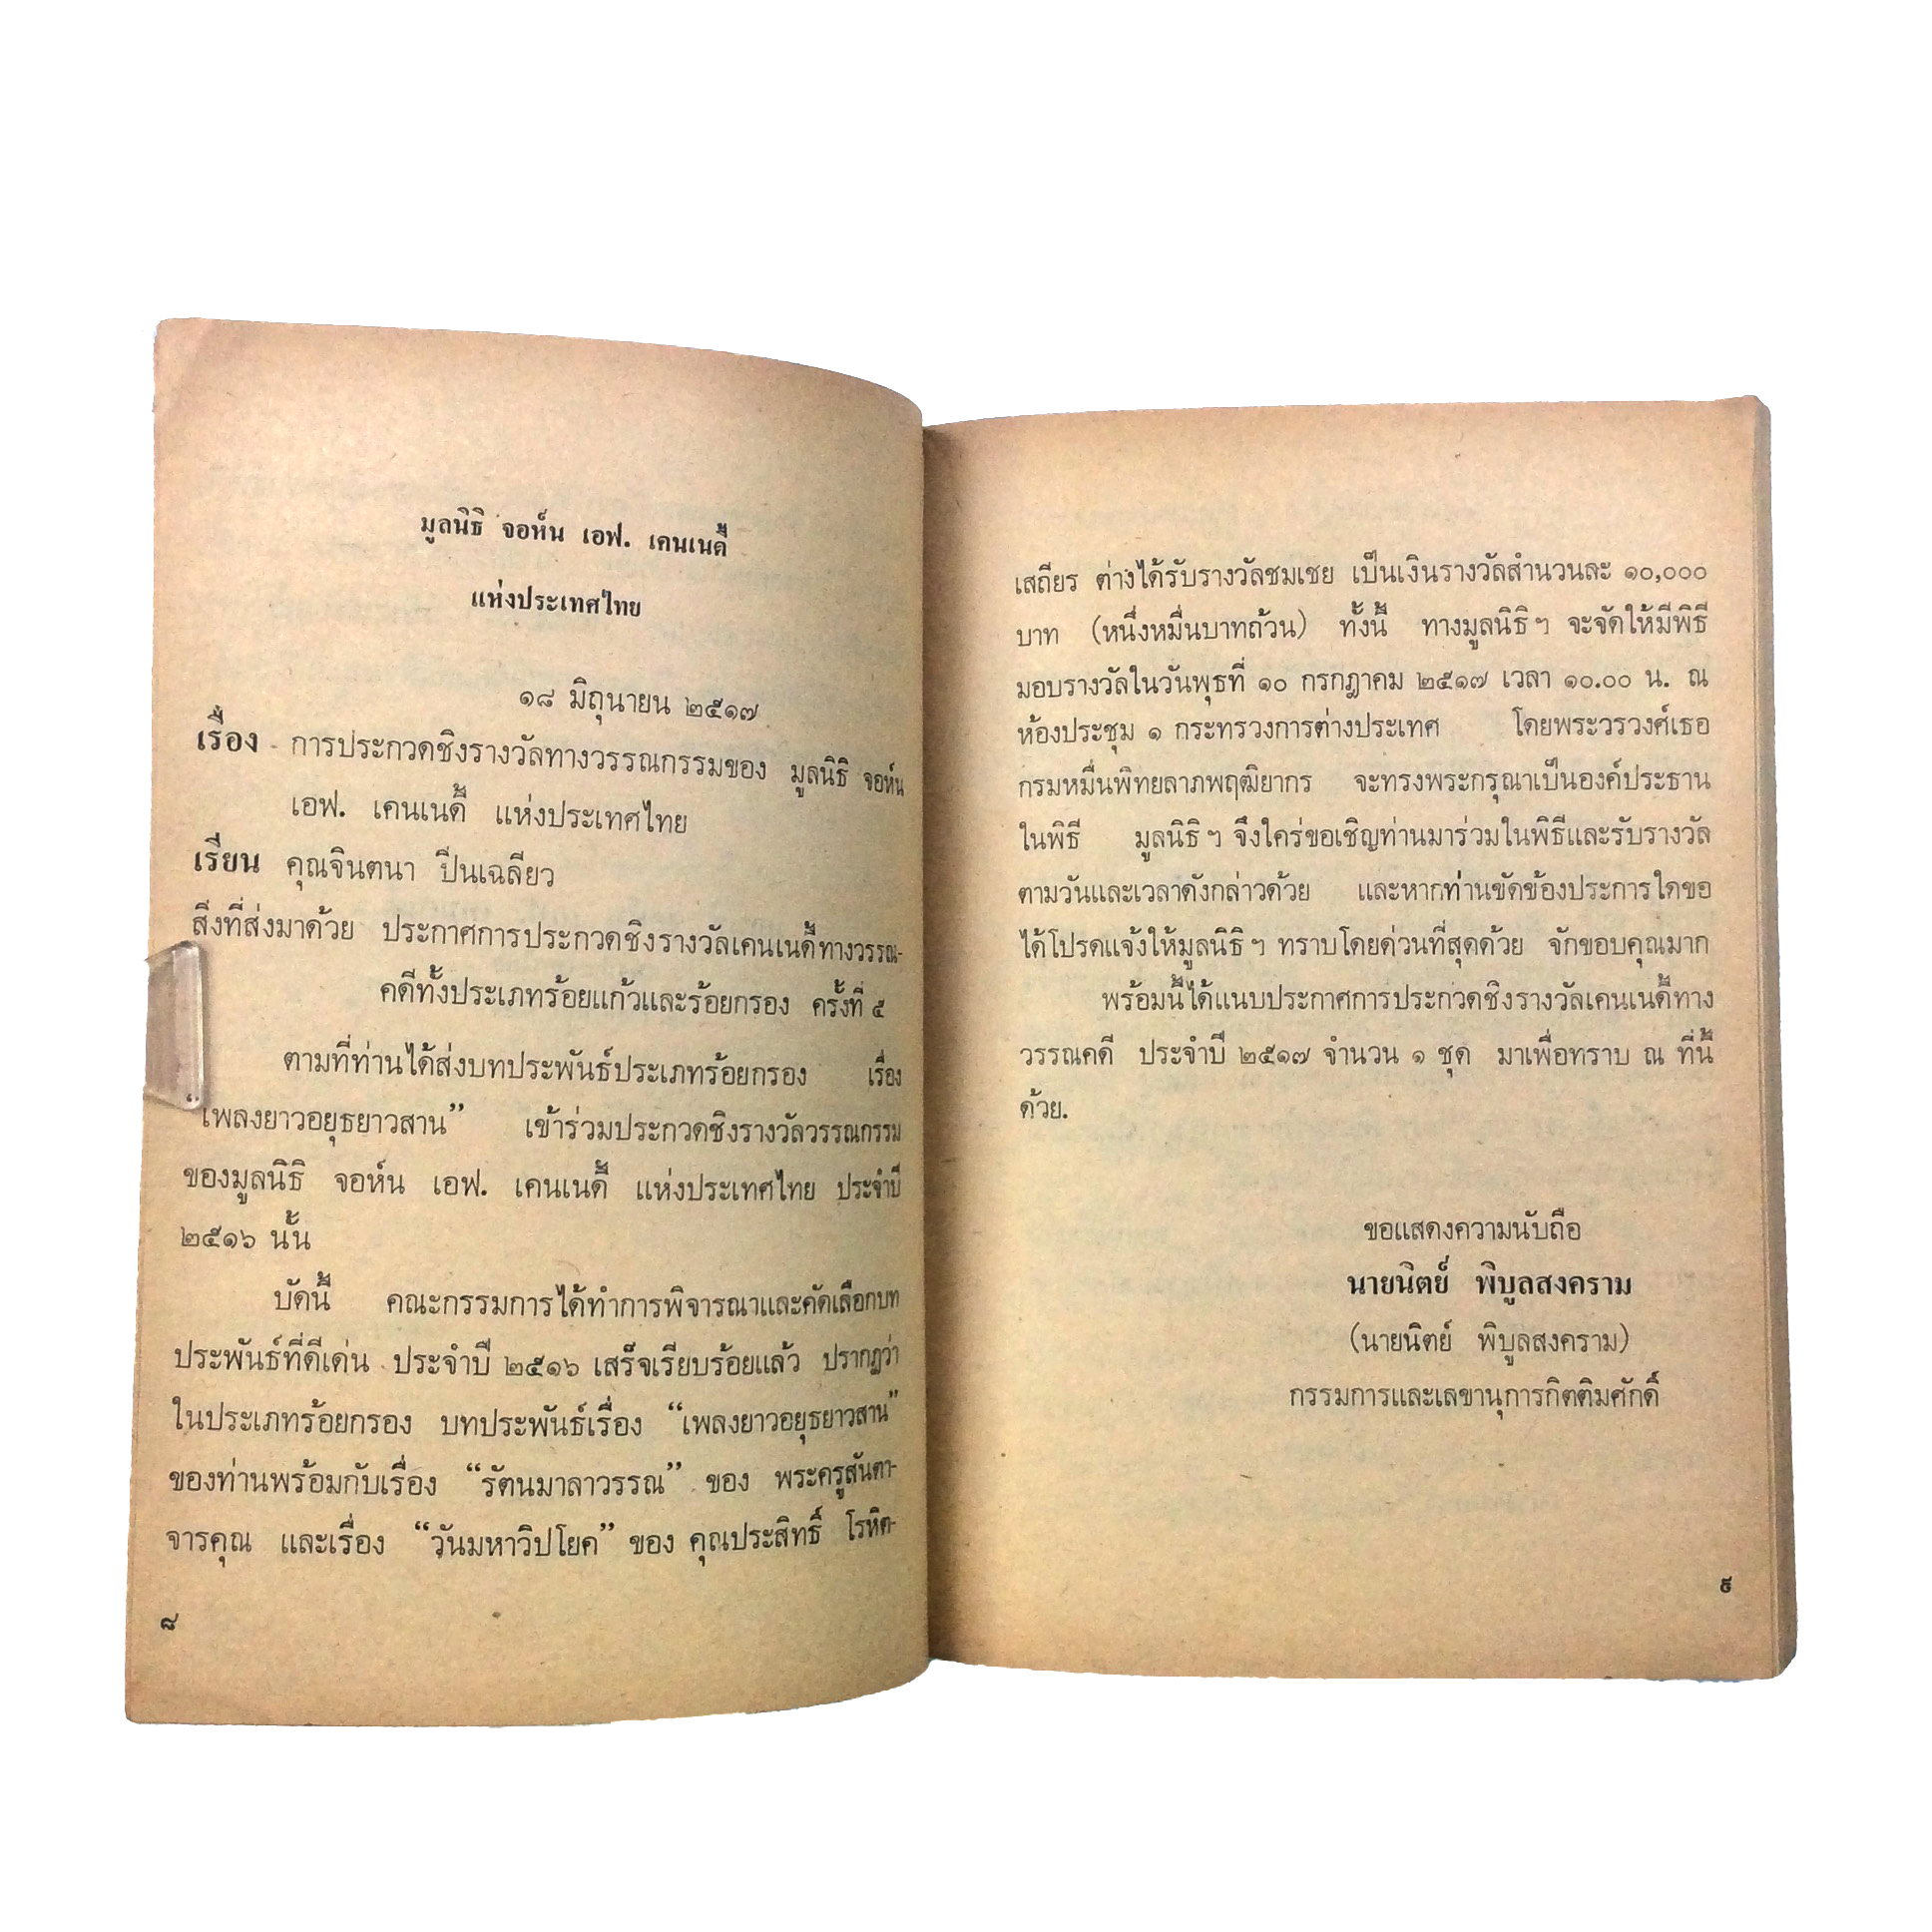 มูลนิธิ จอห์น เอฟ. เคนเนดี้
แห่งประเทศไทย
๑๘ มิถุนายน ๒๕๑๗
เรื่อง การประกวดชิงรางวัลทางวรรณกรรมของ มูลนิธิ จอห์น
เอฟ. เคนเนดี้ แห่งประเทศไทย
เรียน คุณจินตนา ปิ่นเฉลียว
สิ่งที่ส่งมาด้วย ประกาศการประกวดชิงรางวัลเคนเนดี้ทางวรรณ-
คดีทั้งประเภทร้อยแก้วและร้อยกรอง ครั้งที่ ๕
ตามที่ท่านได้ส่งบทประพันธ์ประเภทร้อยกรอง เรื่อง
“เพลงยาวอยุธยาวสาน” เข้าร่วมประกวดชิงรางวัลวรรณกรรม
ของมูลนิธิ จอห์น เอฟ. เคนเนดี้ แห่งประเทศไทย ประจำปี
๒๕๑๖ นั้น
บัดนี้ คณะกรรมการได้ทำการพิจารณาและคัดเลือกบท
ประพันธ์ที่ดีเด่น ประจำปี ๒๕๑๖ เสร็จเรียบร้อยแล้ว ปรากฏว่า
ในประเภทร้อยกรอง บทประพันธ์เรื่อง “เพลงยาวอยุธยาวสาน”
ของท่านพร้อมกับเรื่อง “รัตนมาลาวรรณ” ของ พระครูสันตา-
จารคุณ และเรื่อง “วันมหาวิปโยค” ของ คุณประสิทธิ์ โรหิต-
๘
เสถียร ต่างได้รับรางวัลชมเชย เป็นเงินรางวัลสำนวนละ ๑๐,๐๐๐
บาท (หนึ่งหมื่นบาทถ้วน) ทั้งนี้ ทางมูลนิธิฯ จะจัดให้มีพิธี
มอบรางวัลในวันพุธที่ ๑๐ กรกฎาคม ๒๕๑๗ เวลา ๑๐.๐๐ น. ณ
ห้องประชุม ๑ กระทรวงการต่างประเทศ โดยพระวรวงศ์เธอ
กรมหมื่นพิทยลาภพฤฒิยากร จะทรงพระกรุณาเป็นองค์ประธาน
ในพิธี มูลนิธิฯ จึงใคร่ขอเชิญท่านมาร่วมในพิธีและรับรางวัล
ตามวันและเวลาดังกล่าวด้วย และหากท่านขัดข้องประการใดขอ
ได้โปรดแจ้งให้มูลนิธิฯ ทราบโดยด่วนที่สุดด้วย จักขอบคุณมาก
พร้อมนี้ได้แนบประกาศการประกวดชิงรางวัลเคนเนดี้ทาง
วรรณคดี ประจำปี ๒๕๑๗ จำนวน ๑ ชุด มาเพื่อทราบ ณ ที่นี้
ด้วย.
ขอแสดงความนับถือ
นายนิตย์ พิบูลสงคราม
(นายนิตย์ พิบูลสงคราม)
กรรมการและเลขานุการกิตติมศักดิ์
๙